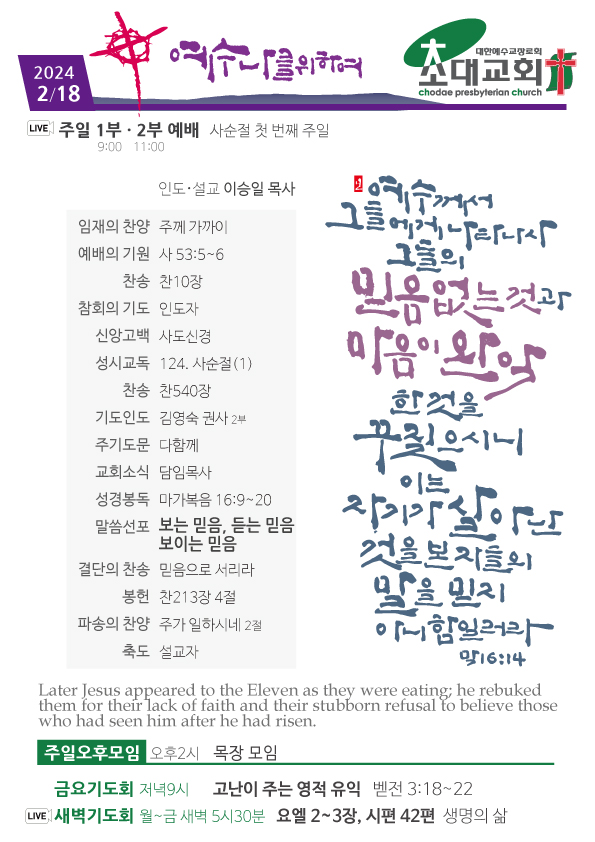 2024
2/18
예수나를위하여
대한예수교장로회
초대교회
chodae presbyterian church
LIVE 주일 1부 · 2부 예배 사순절 첫 번째 주일
9:00 11:00
인도·설교 이승일 목사
임재의 찬양 주께 가까이
예배의 기원 사 53:5~6
찬송 찬10장
참회의 기도 인도자
신앙고백 사도신경
성시교독 124. 사순절(1)
찬송 찬540장
기도인도 김영숙 권사 2부
주기도문 다함께
교회소식 담임목사
성경봉독 마가복음 16:9~20
말씀선포 보는 믿음, 듣는 믿음
보이는 믿음
결단의 찬송 믿음으로 서리라
봉헌 찬213장 4절
파송의 찬양 주가 일하시네 2절
축도 설교자
예수께서
그들에게 나타나사
그들의
믿음 없는 것과
마음이 완악
한 것을
꾸짖으시니
이는
자기가 살아난
것을 본 자들의
말을 믿지
아니함일러라
막16:14
Later Jesus appeared to the Eleven as they were eating; he rebuked
them for their lack of faith and their stubborn refusal to believe those
who had seen him after he had risen.
주일오후모임 오후2시 목장 모임
금요기도회 저녁9시 고난이 주는 영적 유익 벧전 3:18~22
LIVE 새벽기도회 월~금 새벽 5시30분 요엘 2~3장, 시편 42편 생명의 삶